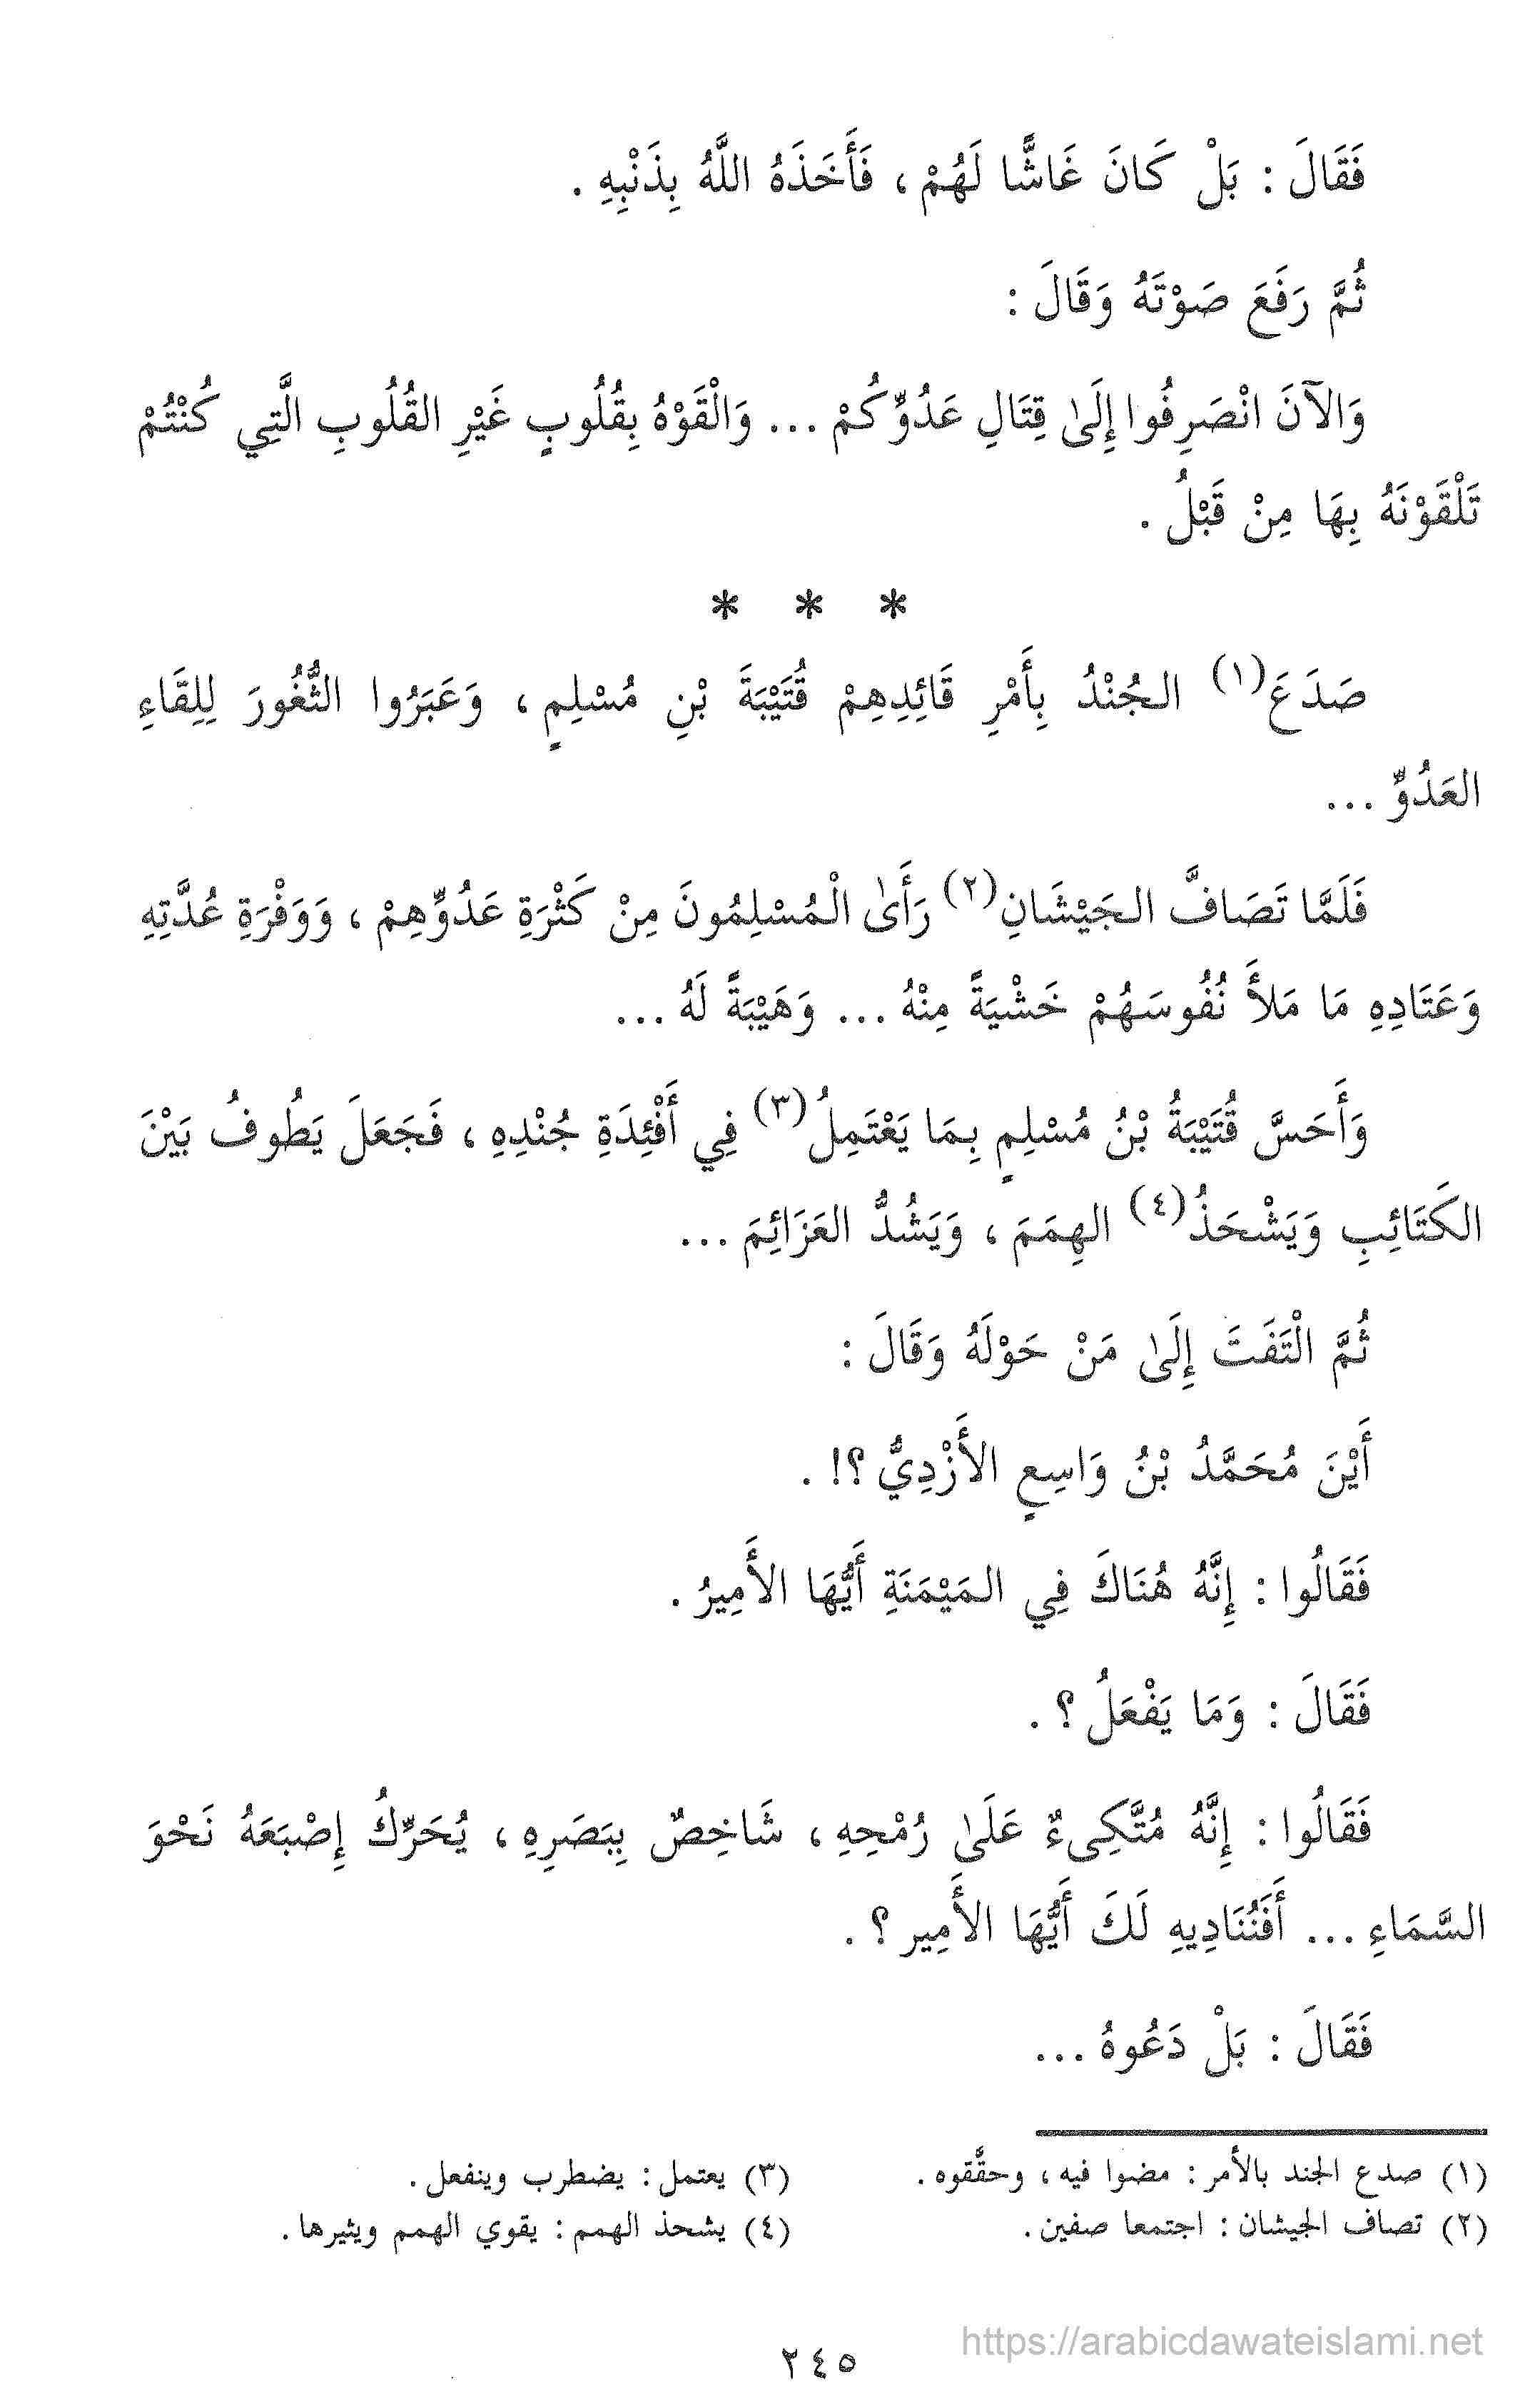 فَقَالَ : بَلْ كَانَ غَاشًّا لَهُمْ ، فَأَخَذَهُ اللَّهُ بِذَنْبِهِ .
ثُمَّ رَفَعَ صَوْتَهُ وَقَالَ :
وَالآنَ انْصَرِفُوا إِلَىٰ قِتَالِ عَدُوِّكُمْ ... وَالْقَوْهُ بِقُلُوبٍ غَيْرِ القُلُوبِ الَّتِي كُنْتُمْ
تَلْقَوْنَهُ بِهَا مِنْ قَبْلُ .
* * *
صَدَعَ(١) الجُنْدُ بِأَمْرِ قَائِدِهِمْ قُتَيْبَةَ بْنِ مُسْلِمٍ ، وَعَبَرُوا الثُّغُورَ لِلِقَاءِ
العَدُوِّ ...
فَلَمَّا تَصَافَّ الجَيْشَانِ(٢) رَأَىٰ الْمُسْلِمُونَ مِنْ كَثْرَةِ عَدُوِّهِمْ ، وَوَفْرَةِ عُدَّتِهِ
وَعَتَادِهِ مَا مَلأَ نُفُوسَهُمْ خَشْيَةً مِنْهُ ... وَهَيْبَةً لَهُ ...
وَأَحَسَّ قُتَيْبَةُ بْنُ مُسْلِمٍ بِمَا يَعْتَمِلُ(٣) فِي أَفْئِدَةِ جُنْدِهِ ، فَجَعَلَ يَطُوفُ بَيْنَ
الكَتَائِبِ وَيَشْحَذُ(٤) الهِمَمَ ، وَيَشُدُّ العَزَائِمَ ...
ثُمَّ الْتَفَتَ إِلَىٰ مَنْ حَوْلَهُ وَقَالَ :
أَيْنَ مُحَمَّدُ بْنُ وَاسِعٍ الأَزْدِيُّ ؟! .
فَقَالُوا : إِنَّهُ هُنَاكَ فِي المَيْمَنَةِ أَيُّهَا الأَمِيرُ .
فَقَالَ : وَمَا يَفْعَلُ ؟ .
فَقَالُوا : إِنَّهُ مُتَّكِىءٌ عَلَىٰ رُمْحِهِ ، شَاخِصٌ بِبَصَرِهِ ، يُحَرِّكُ إِصْبَعَهُ نَحْوَ
السَّمَاءِ ... أَفَنُنَادِيهِ لَكَ أَيُّهَا الأَمِير ؟ .
فَقَالَ : بَلْ دَعُوهُ ...
(١) صدع الجند بالأمر : مضوا فيه ، وحقَّقوه .
(٢) تصاف الجيشان : اجتمعا صفين .
(٣) يعتمل : يضطرب وينفعل .
(٤) يشحذ الهمم : يقوي الهمم ويثيرها .
https://arabicdawateislami.net
٢٤٥